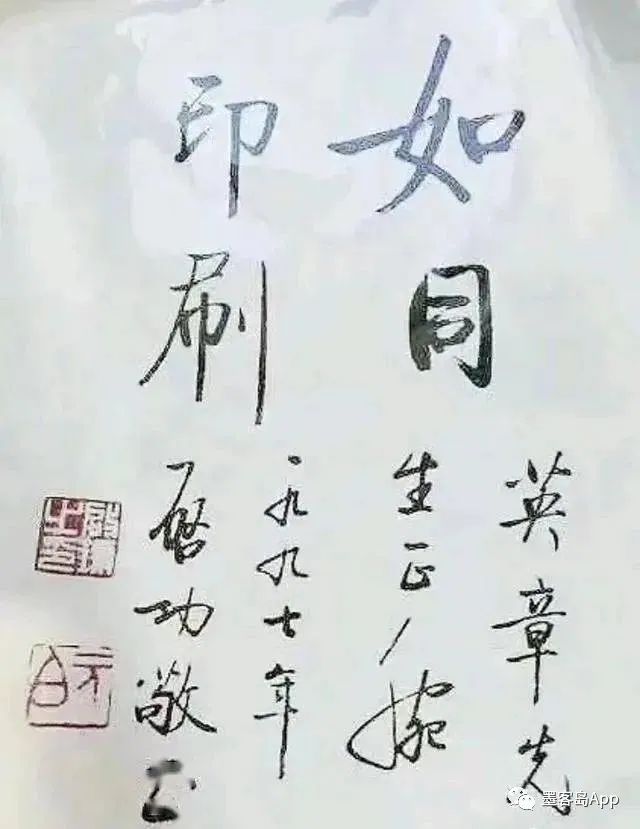 如同
印刷
英章先
生正
一九九七年
启功敬
元白
墨客岛App